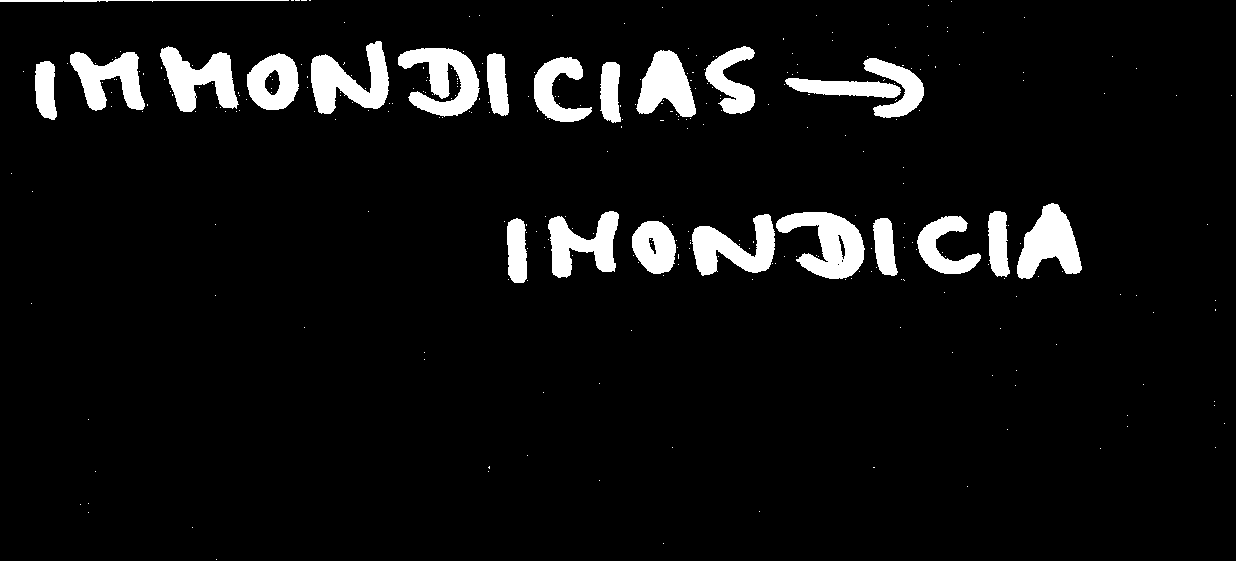 IMMONDICIAS →
IMONDICIA